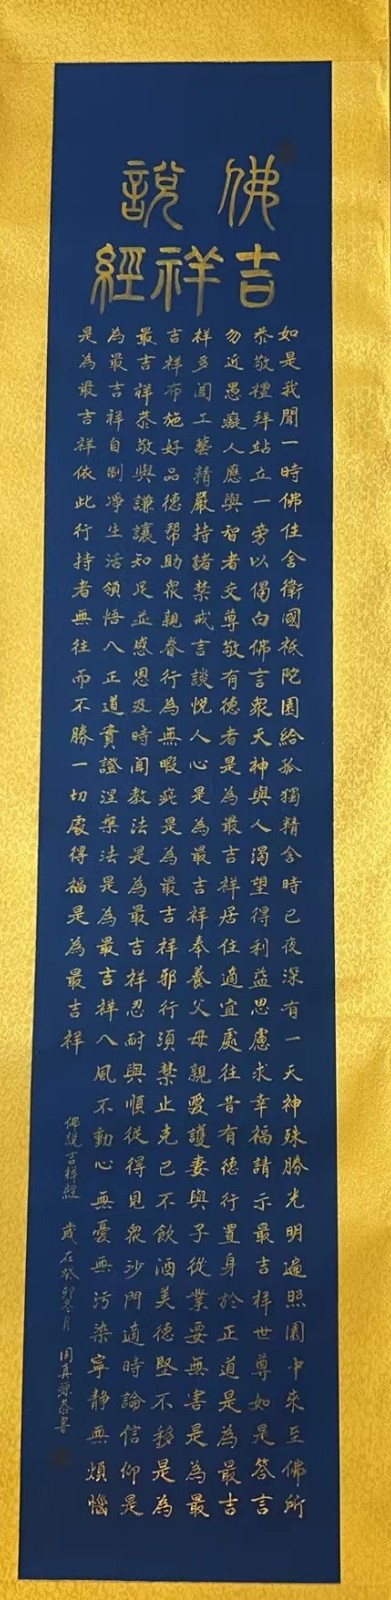 佛說
吉祥經
如是我聞一時佛住舍衛國祇陀園給孤獨精舍時已夜深有一天神殊勝光明遍照園中來至佛所
恭敬禮拜站立一旁以偈白佛言眾天神與人渴望得利益思慮求幸福請示最吉祥世尊如是答言
勿近愚癡人應與智者交尊敬有德者是為最吉祥居住適宜處往昔有德行置身於正道是為最吉
祥多聞工藝精嚴持諸禁戒言談悅人心是為最吉祥奉養父母親愛護妻與子從業要無害是為最
吉祥布施好品德幫助眾親眷行為無暇疵是為最吉祥邪行須禁止克己不飲酒美德堅不移是為
最吉祥恭敬與謙讓知足並感恩及時聞教法是為最吉祥忍耐與順從得見眾沙門適時論信仰是
為最吉祥自制淨生活領悟八正道實證涅槃法是為最吉祥八風不動心無憂無污染寧静無煩惱
是為最吉祥依此行持者無往而不勝一切處得福是為最吉祥
佛說吉祥經 歲在癸卯冬月 周真恭書